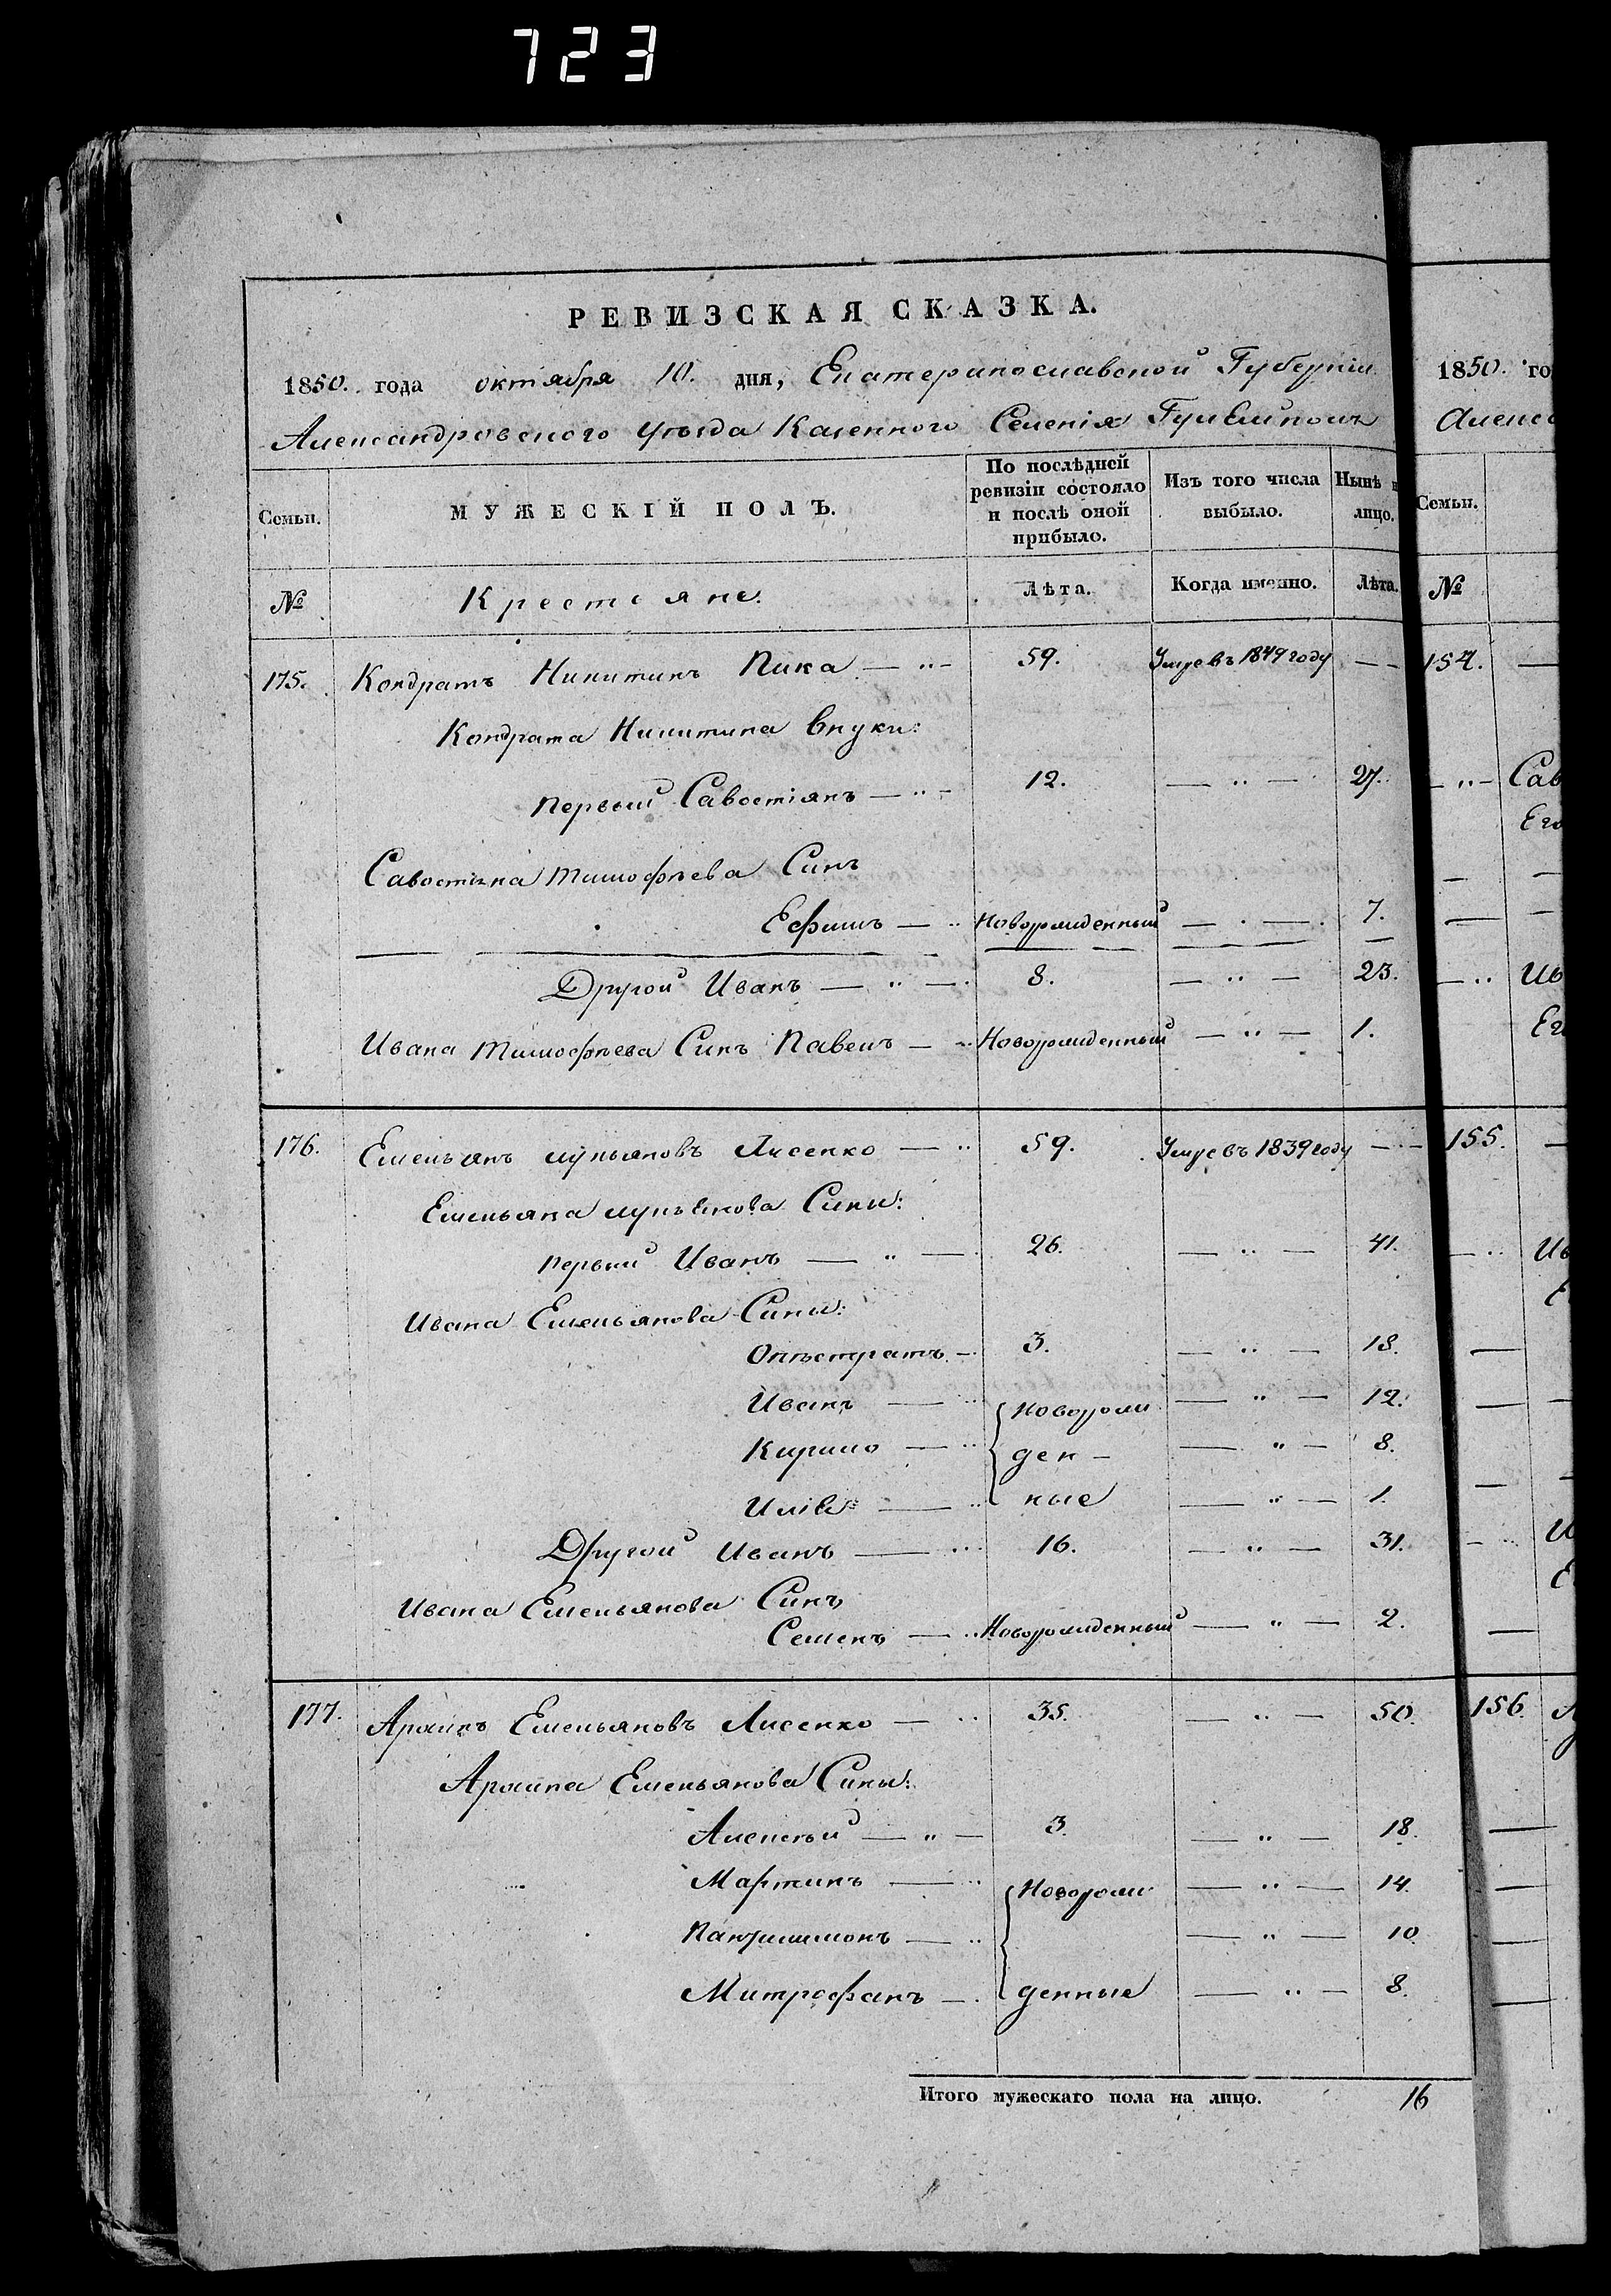 723
РЕВИЗСКАЯ СКАЗКА.
1850. года октября 10. дня, Екатеринославской Губерніи
Александровского уѣзда Казенного Селенія Гуляйполь
Семьи.
МУЖЕСКІЙ ПОЛЪ.
По послѣдней ревизіи состояло и послѣ оной прибыло.
Изъ того числа выбыло.
Нынѣ н
лицо.
№
Крестьяне.
Лѣта.
Когда именно.
Лѣта.
175. Кондратъ Никитинъ Пика — „ — 59. Умре въ 1849 году — —
Кондрата Никитина внуки:
первый Савостіянъ — „ — 12. — „ — 27.
Савостіяна Тимофѣева Синъ
Ефимъ — „ Новорожденный — „ — 7.
Другой Иванъ — „ — 8. — „ — 23.
Ивана Тимофѣева Синъ Павелъ — „ Новорожденный — „ — 1.
176. Емельянъ Лукьяновъ Лисенко — „ 59. Умре въ 1839 году — —
Емельяна Лукьянова Сины:
первый Иванъ — „ — 26. — „ — 41.
Ивана Емельянова Сины:
3. — „ — 18.
Иванъ — „ Новорож — „ — 12.
Кирило — „ ден — — „ — 8.
Илія — „ ные — „ — 1.
Другой Иванъ — „ 16. — „ — 31.
Ивана Емельянова Синъ
Семенъ — „ Новорожденный — „ — 2.
177. Емельяновъ Лисенко — „ 35. — „ — 50.
Емельянова Сины:
Алексѣй — „ — 3. — „ — 18.
Мартинъ — „ Новорож — „ — 14.
— „ — „ — 10
Митрофанъ — „ денные — „ — 8.
Итого мужескаго пола на лицо. 16
1850. го
Алекса
Семьи.
№
154. —
— „ — Сав
Его
— —
— —
— „ Ив
Ег
155. —
— „ Ив
Е
— —
— —
156.